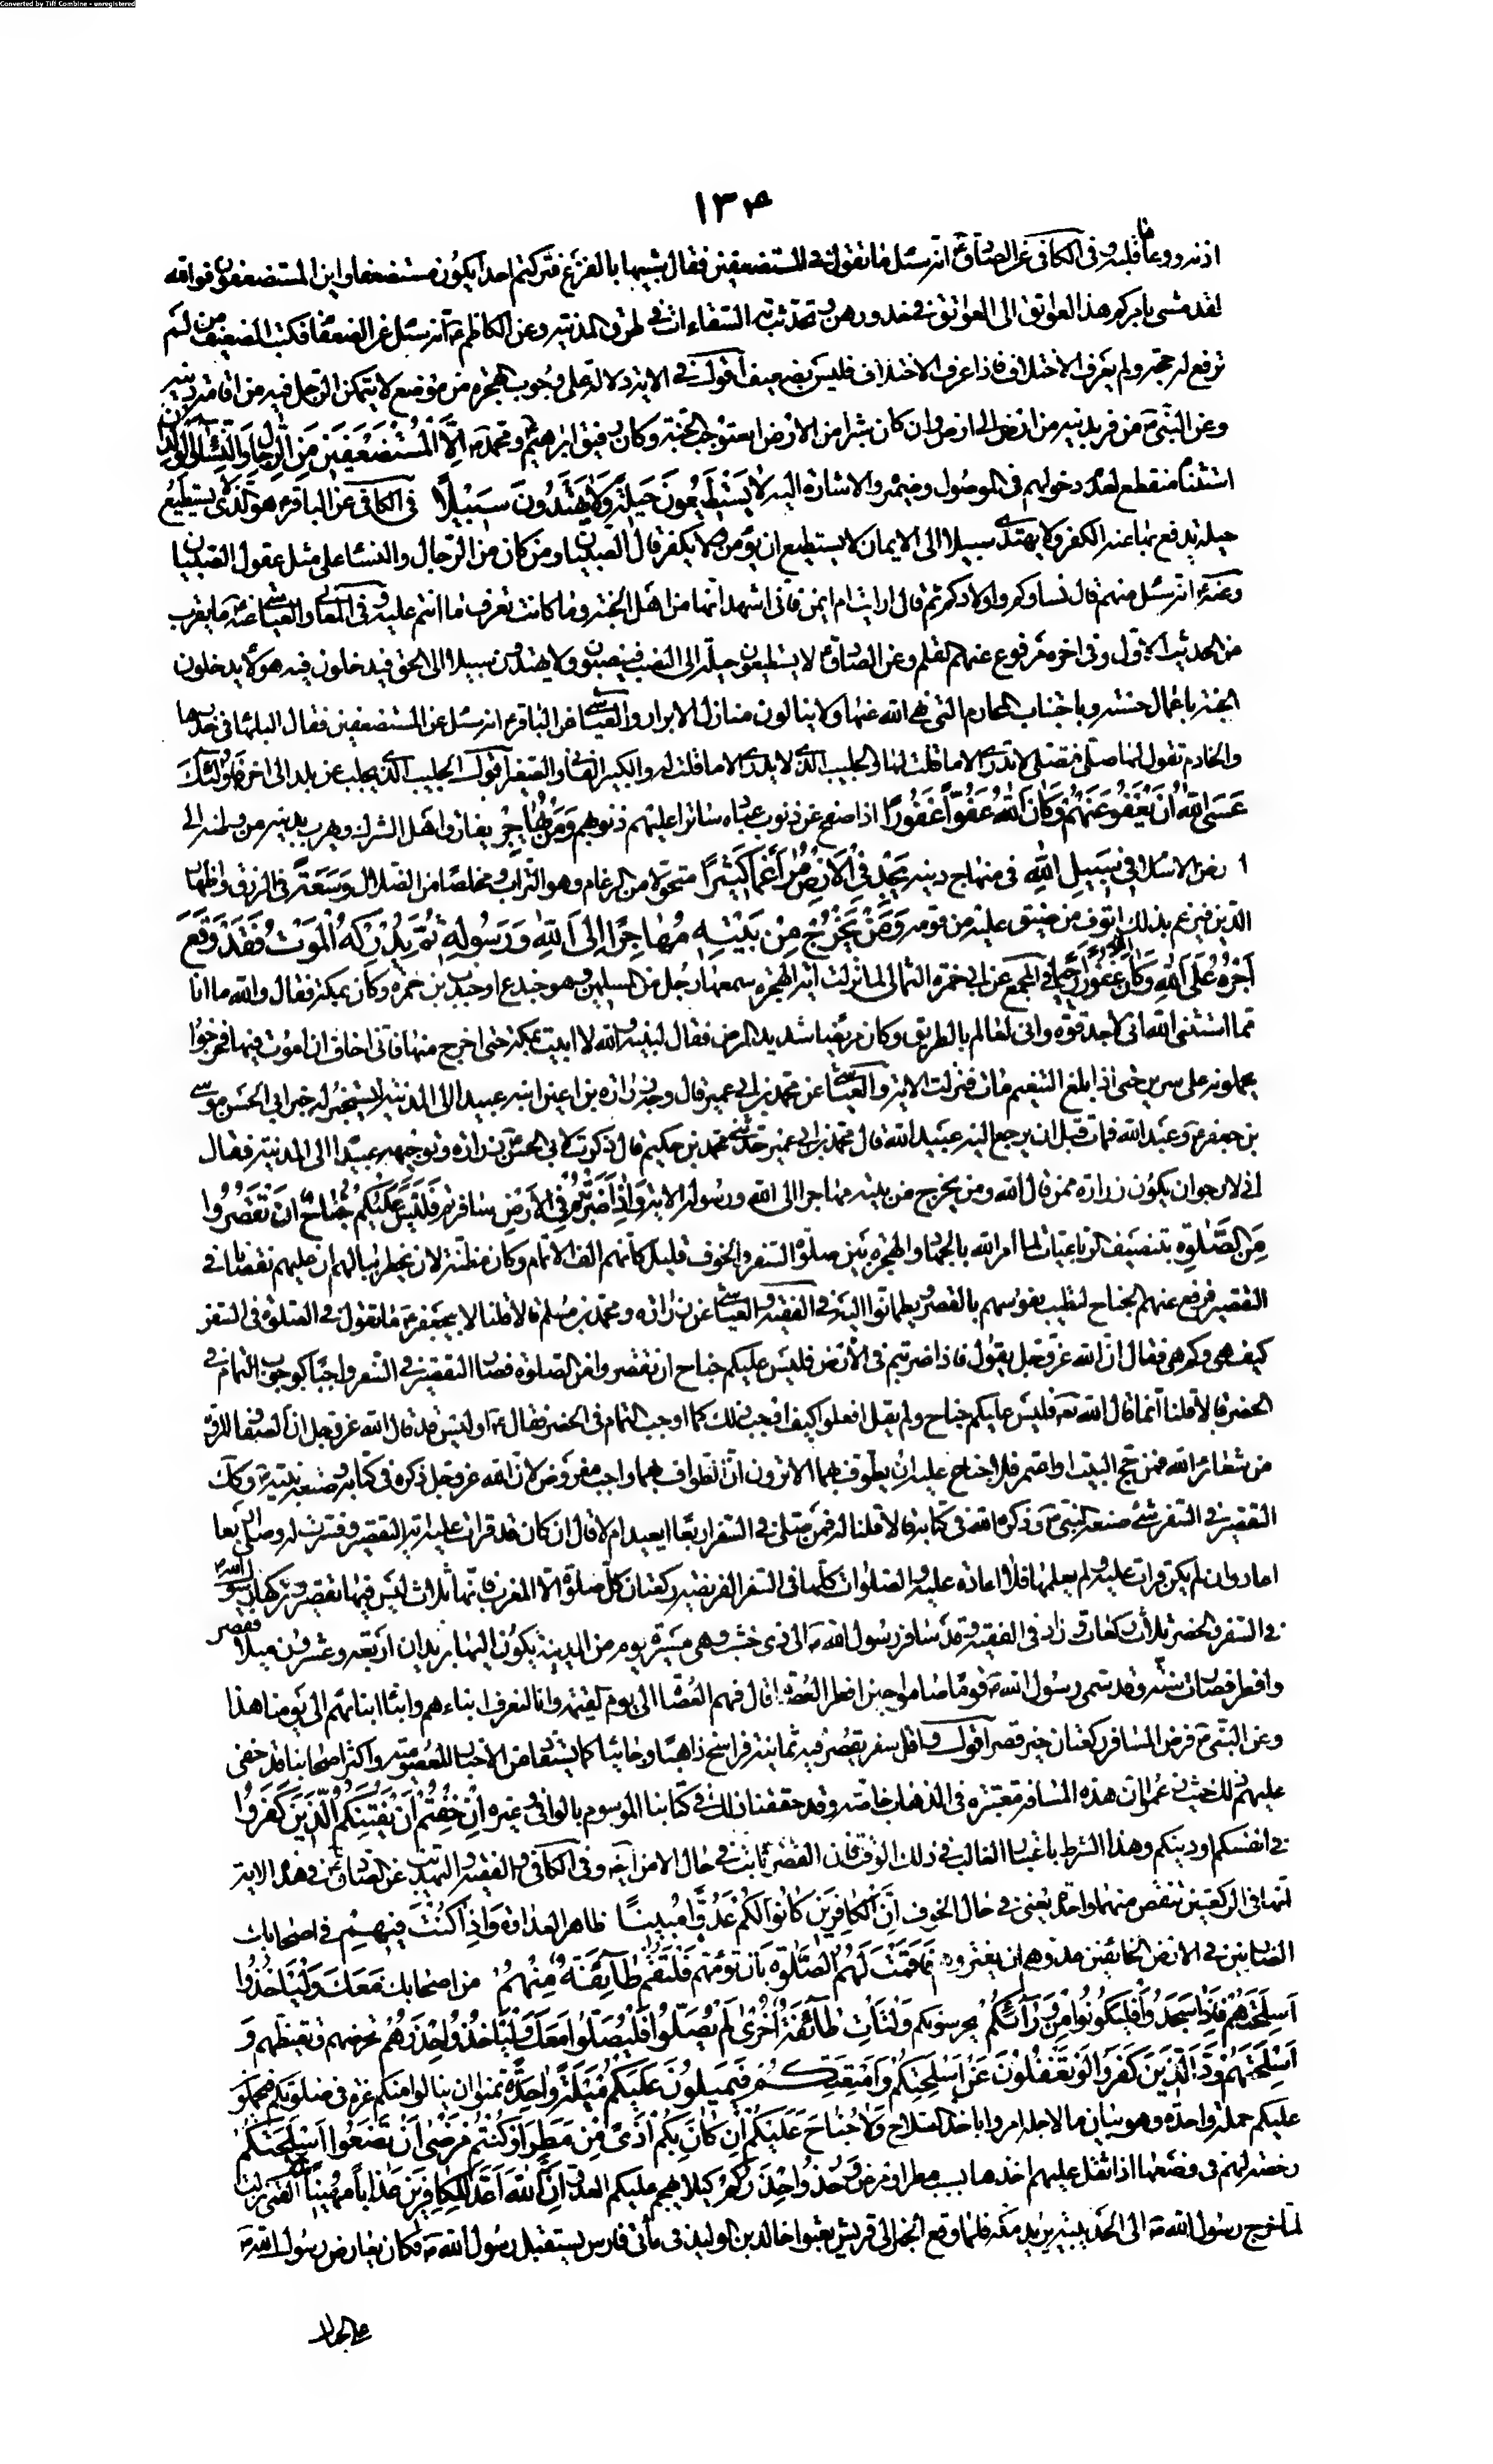 Converted by Tiff Combine - unregistered
۱۳۴
اذنه ووعا قلبه وفى الكافى عن الصادق انه سئل ما تقول فى المستضعفين فقال شبيها بالفزع فتركتم احدا يكون مستضعفا واين المستضعفون فوالله
لقد مشى بامركم هذا العواتق الى العواتق فى خدورهن وتحدثت به السقاءات فى طرق المدينة وعن الكاظم ع انه سئل عن الضعفا فكتب الضعيف من لم
ترفع له حجة ولم يعرف الاختلاف فاذا عرف الاختلاف فليس بضعيف اقول فى الاية دلالة على وجوب الهجرة من موضع لا يتمكن الرجل فيه من اقامة دينه
وعن النبى ص من فر بدينه من ارض الى ارض وان كان شبرا من الارض استوجب الجنة وكان رفيق ابرهيم ومحمد ص اِلَّا الْمُسْتَضْعَفينَ مِنَ الرِّجالِ وَالنِّسآءِ وَالْوِلْدانِ
استثناء منقطع لعدم دخولهم فى الموصول وضميره والاشارة اليه لا يَسْتَطيعُونَ حيلَةً وَلا يَهْتَدُونَ سَبيلًا فى الكافى عن الباقر ع هو الذى لا يستطيع
حيلة يدفع بها عنه الكفر ولا يهتدى سبيلا الى الايمان لا يستطيع ان يؤمن ولا يكفر قال الصبيان ومن كان من الرجال والنساء على مثل عقول الصبيان
وعنه ع انه سئل منهم قال نساؤكم واولادكم ثم قال ارايت ام ايمن فانى اشهد انها من اهل الجنة وما كانت تعرف ما انتم عليه وفى المعانى والعياشى عنه ع ما يقرب
من الحديث الاول وفى اخره مرفوع عنهم القلم وعن الصادق ع لا يستطيعون حيلة الى النصب فينصبون ولا يهتدون سبيلا الى الحق فيدخلون فيه هؤلاء يدخلون
الجنة باعمال حسنة وباجتناب المحارم التى نهى الله عنها ولا ينالون منازل الابرار والعياشى عن الباقر ع انه سئل عن المستضعفين فقال البلهاء فى خدرها
والخادم تقول لها صلى فتصلى لا تدرى الا ما قلت لها والجليب الذى لا يدرى الا ما قلت له والكبير الفانى والصغير اقول الجليب الذى يجلب من بلد الى اخر فَاُولئِكَ
عَسَى اللهُ اَنْ يَعْفُوَ عَنْهُمْ وَكانَ اللهُ عَفُوًّا غَفُورًا اذا صفح عن ذنوب عباده ساترا عليهم ذنوبهم وَمَنْ يُهاجِرْ يفارق اهل الشرك ويهرب بدينه من وطنه الى
ارض الاسلام فى سَبيلِ اللهِ فى منهاج دينه يَجِدْ فِى الْاَرْضِ مُراغَمًا كَثيرًا متحولا من الرغام وهو التراب ومخلصا من الضلال وَسَعَةً فى الرزق واظهار
الدين فيرغم بذلك انوف من ضيق عليه من قومه وَمَنْ يَخْرُجْ مِنْ بَيْتِه مُهاجِرًا اِلَى اللهِ وَرَسُولِه ثُمَّ يُدْرِكْهُ الْمَوْتُ فَقَدْ وَقَعَ
اَجْرُهُ عَلَى اللهِ وَكانَ اللهُ غَفُورًا رَحيمًا فى المجمع عن ابى حمزة الثمالى لما نزلت اية الهجرة سمعها رجل من المسلمين وهو جندع او جندب بن ضمرة وكان بمكة فقال والله ما انا
مما استثنى الله انى لاجد قوة وانى لعالم بالطريق وكان مريضا شديد المرض فقال لبنيه والله لا ابيت بمكة حتى اخرج منها فانى اخاف ان اموت فيها فخرجوا
يحملونه على سرير حتى اذا بلغ التنعيم مات فنزلت الاية والعياشى عن محمد بن ابى عمير قال وجه زرارة بن اعين ابنه عبيدا الى المدينة ليستخبر له خبر ابى الحسن موسى
بن جعفر ع وعبد الله فمات قبل ان يرجع اليه عبيد الله قال محمد بن ابى عمير حدثنى محمد بن حكيم قال ذكرت لابى الحسن ع زرارة وتوجيهه عبيدا الى المدينة فقال
انى لارجو ان يكون زرارة ممن قال الله ومن يخرج من بيته مهاجرا الى الله ورسوله الاية وَاِذا ضَرَبْتُمْ فِى الْاَرْضِ سافرتم فَلَيْسَ عَلَيْكُمْ جُناحٌ اَنْ تَقْصُرُوا
مِنَ الصَّلٰوةِ بتنصيف الرباعيات لما امر الله بالجهاد والهجرة بين صلوة السفر والخوف قليل كانهم الفوا الاتمام وكان مظنة لان يخطر ببالهم ان عليهم نقصانا فى
التقصير فرفع عنهم الجناح لتطيب نفوسهم بالقصر ويطمانوا اليه فى الفقيه والعياشى عن زرارة ومحمد بن مسلم قالا قلنا لابى جعفر ع ما تقول فى الصلوة فى السفر
كيف هى وكم هى فقال ان الله عز وجل يقول فاذا ضربتم فى الارض فليس عليكم جناح ان تقصروا من الصلوة فصار التقصير فى السفر واجبا كوجوب التمام فى
الحضر قالا قلنا انما قال الله تعه فليس عليكم جناح ولم يقل افعلوا كيف اوجب ذلك كما اوجب التمام فى الحضر فقال ع اوليس قد قال الله عز وجل ان الصفا والمروة
من شعائر الله فمن حج البيت او اعتمر فلا جناح عليه ان يطوف بهما الا ترون ان الطواف بهما واجب مفروض لان الله عز وجل ذكره فى كتابه وصنعه نبيه ص وكذلك
التقصير فى السفر شئ صنعه النبى ص وذكره الله فى كتابه قالا قلنا له فمن صلى فى السفر اربعا ايعيد ام لا قال ان كان قد قرات عليه اية التقصير وفسرت له وصلى اربعا
اعاد وان لم يكن قرات عليه ولم يعلمها فلا اعادة عليه والصلوات كلها فى السفر الفريضة ركعتان كل صلوة الا المغرب فانها ثلاث ليس فيها تقصير تركها رسول الله ص
فى السفر والحضر ثلاث ركعات وزاد فى الفقيه وقد سافر رسول الله ص الى ذى خشب وهى مسيرة يوم من المدينة يكون اليها بريدان اربعة وعشرون ميلا فقصر
وافطر فصارت سنة وقد سمى رسول الله ص قوما صاموا حين افطر العصاة قال فهم العصاة الى يوم القيمة وانا لنعرف ابناءهم وابناء ابنائهم الى يومنا هذا
وعن النبى ص فرض المسافر ركعتان غير قصر اقول واقل سفر يقصر فيه ثمانية فراسخ ذاهبا وجائيا كما يستفاد من الاخبار المعصومية واكثر اصحابنا قد خفى
عليهم ذلك حيث زعموا ان هذه المسافة معتبرة فى الذهاب خاصة وقد حققنا ذلك فى كتابنا الموسوم بالوافى وغيره اِنْ خِفْتُمْ اَنْ يَفْتِنَكُمُ الَّذينَ كَفَرُوا
فى انفسكم او دينكم وهذا الشرط باعتبار الغالب فى ذلك الوقت فان القصر ثابت فى حال الامن ايضا وفى الكافى والفقيه والتهذيب عن الصادق ع فى هذه الاية
انها فى الركعتين تنقص منهما واحدة يعنى فى حال الخوف اِنَّ الْكافِرينَ كانُوا لَكُمْ عَدُوًّا مُبينًا ظاهر العداوة وَاِذا كُنْتَ فيهِمْ فى اصحابك
الضاربين فى الارض الخائفين عدوهم ان يغتروهم فَاَقَمْتَ لَهُمُ الصَّلٰوةَ بان تؤمهم فَلْتَقُمْ طآئِفَةٌ مِنْهُمْ من اصحابك مَعَكَ وَلْيَاْخُذُوا
اَسْلِحَتَهُمْ فَاِذا سَجَدُوا فَلْيَكُونُوا مِنْ وَرآئِكُمْ يحرسونكم وَلْتَاْتِ طآئِفَةٌ اُخْرى لَمْ يُصَلُّوا فَلْيُصَلُّوا مَعَكَ وَلْيَاْخُذُوا حِذْرَهُمْ تحرزهم وتيقظهم وَ
اَسْلِحَتَهُمْ وَدَّ الَّذينَ كَفَرُوا لَوْ تَغْفُلُونَ عَنْ اَسْلِحَتِكُمْ وَاَمْتِعَتِكُمْ فَيَميلُونَ عَلَيْكُمْ مَيْلَةً واحِدَةً تمنوا ان ينالوا منكم غرة فى صلوتكم فيحملون
عليكم حملة واحدة وهو بيان ما لاجله امروا باخذ السلاح وَلا جُناحَ عَلَيْكُمْ اِنْ كانَ بِكُمْ اَذًى مِنْ مَطَرٍ اَوْ كُنْتُمْ مَرْضى اَنْ تَضَعُوا اَسْلِحَتَكُمْ
رخصة لهم فى وضعها اذا ثقل عليهم اخذها بسبب مطر او مرض وَخُذُوا حِذْرَكُمْ كيلا يهجم عليكم العدو اِنَّ اللهَ اَعَدَّ لِلْكافِرينَ عَذابًا مُهينًا القمى نزلت
لما خرج رسول الله ص الى الحديبية يريد مكة فلما وقع الخبر الى قريش بعثوا خالد بن الوليد فى مأتى فارس يستقبل رسول الله ص فكان يعارض رسول الله ص
على الجبال